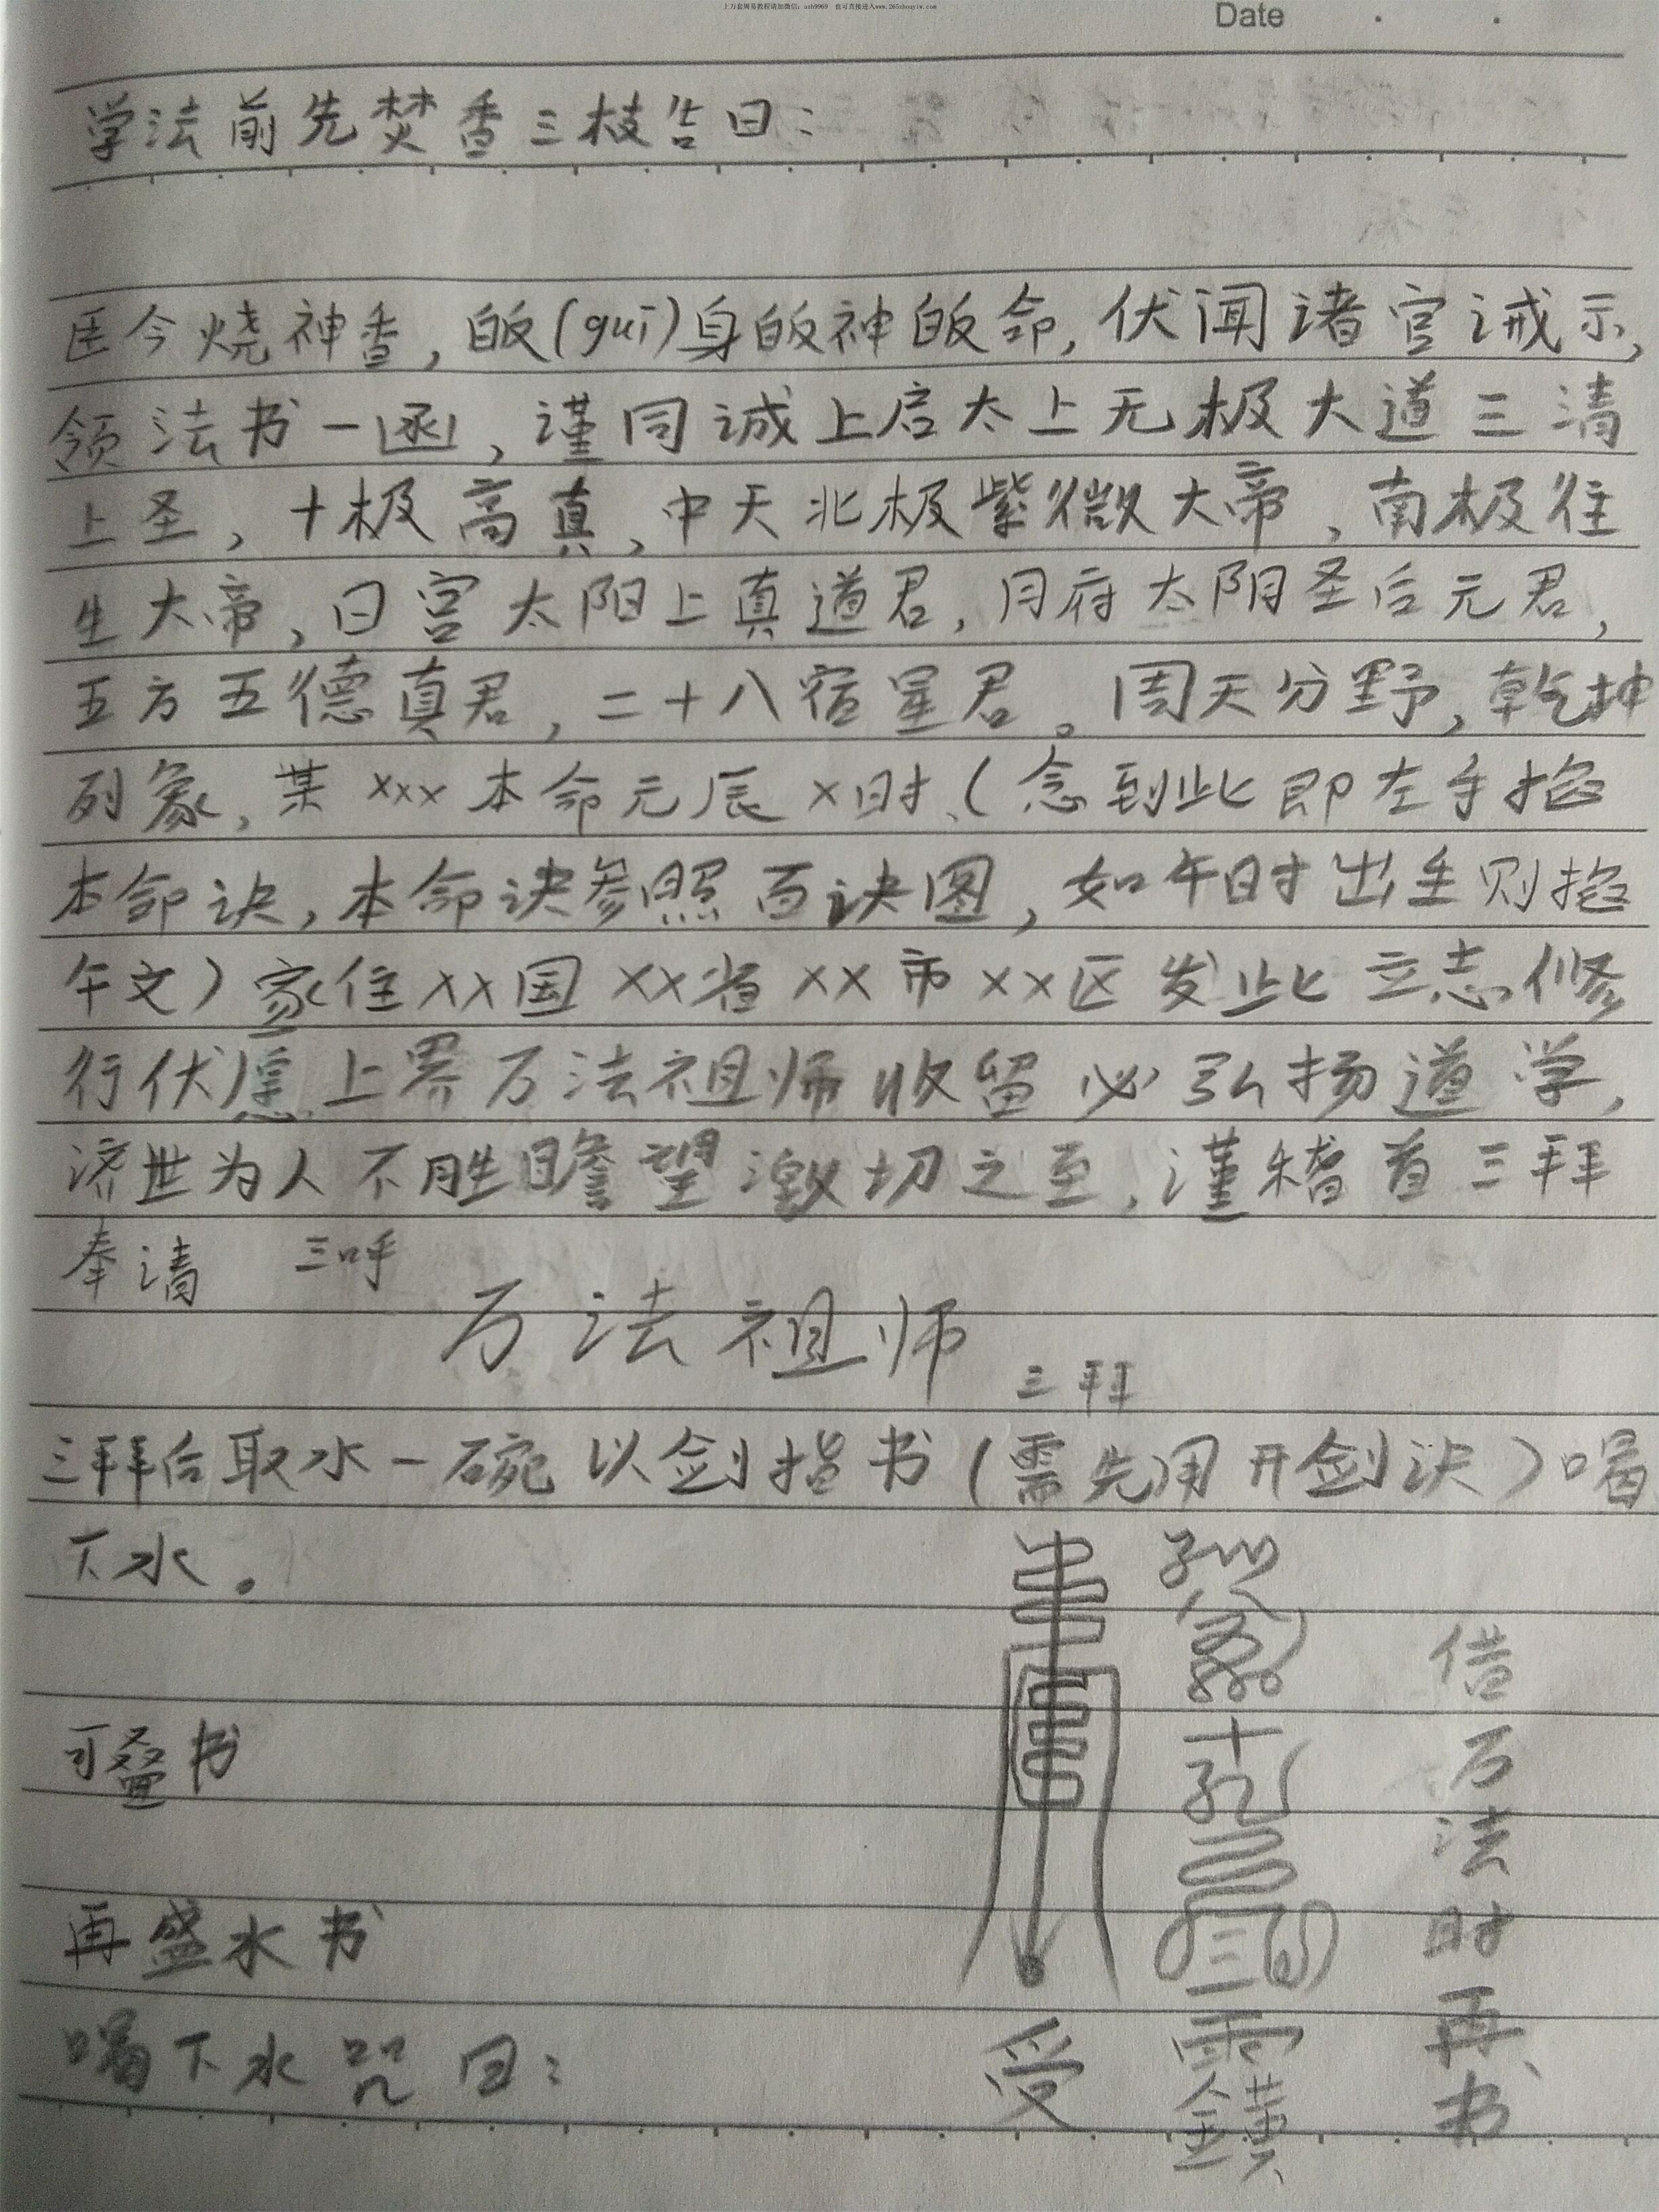 上万套周易教程请加微信:
Date
学法前先焚香三枝告曰:
今烧神香,皈(gui)身皈神皈命,伏闻诸官诫示,
领法书一函,谨同诚上启太上无极大道三清
上圣,十极高真,中天北极紫微大帝,南极往
生大帝,日宫太阳上真道君,月府太阴圣后元君,
五方五德真君,二十八宿星君。周天分野,乾坤
列象,某xxx本命元辰x时(念到此即左手掐
本命诀,本命诀参照百诀图,如午时出生则掐
午文)家住xx国xx省xx市xx区发此立志修
行伏愿上界万法祖师收留必弘扬道学,
济世为人不胜瞻望激切之至,谨稽首三拜
奉请 三呼
万法祖师
三拜
三拜后取水一碗以剑指书(需先用开剑诀)喝
下水。
可叠书
再盛水书
喝下水咒曰:
受
借万法时再书